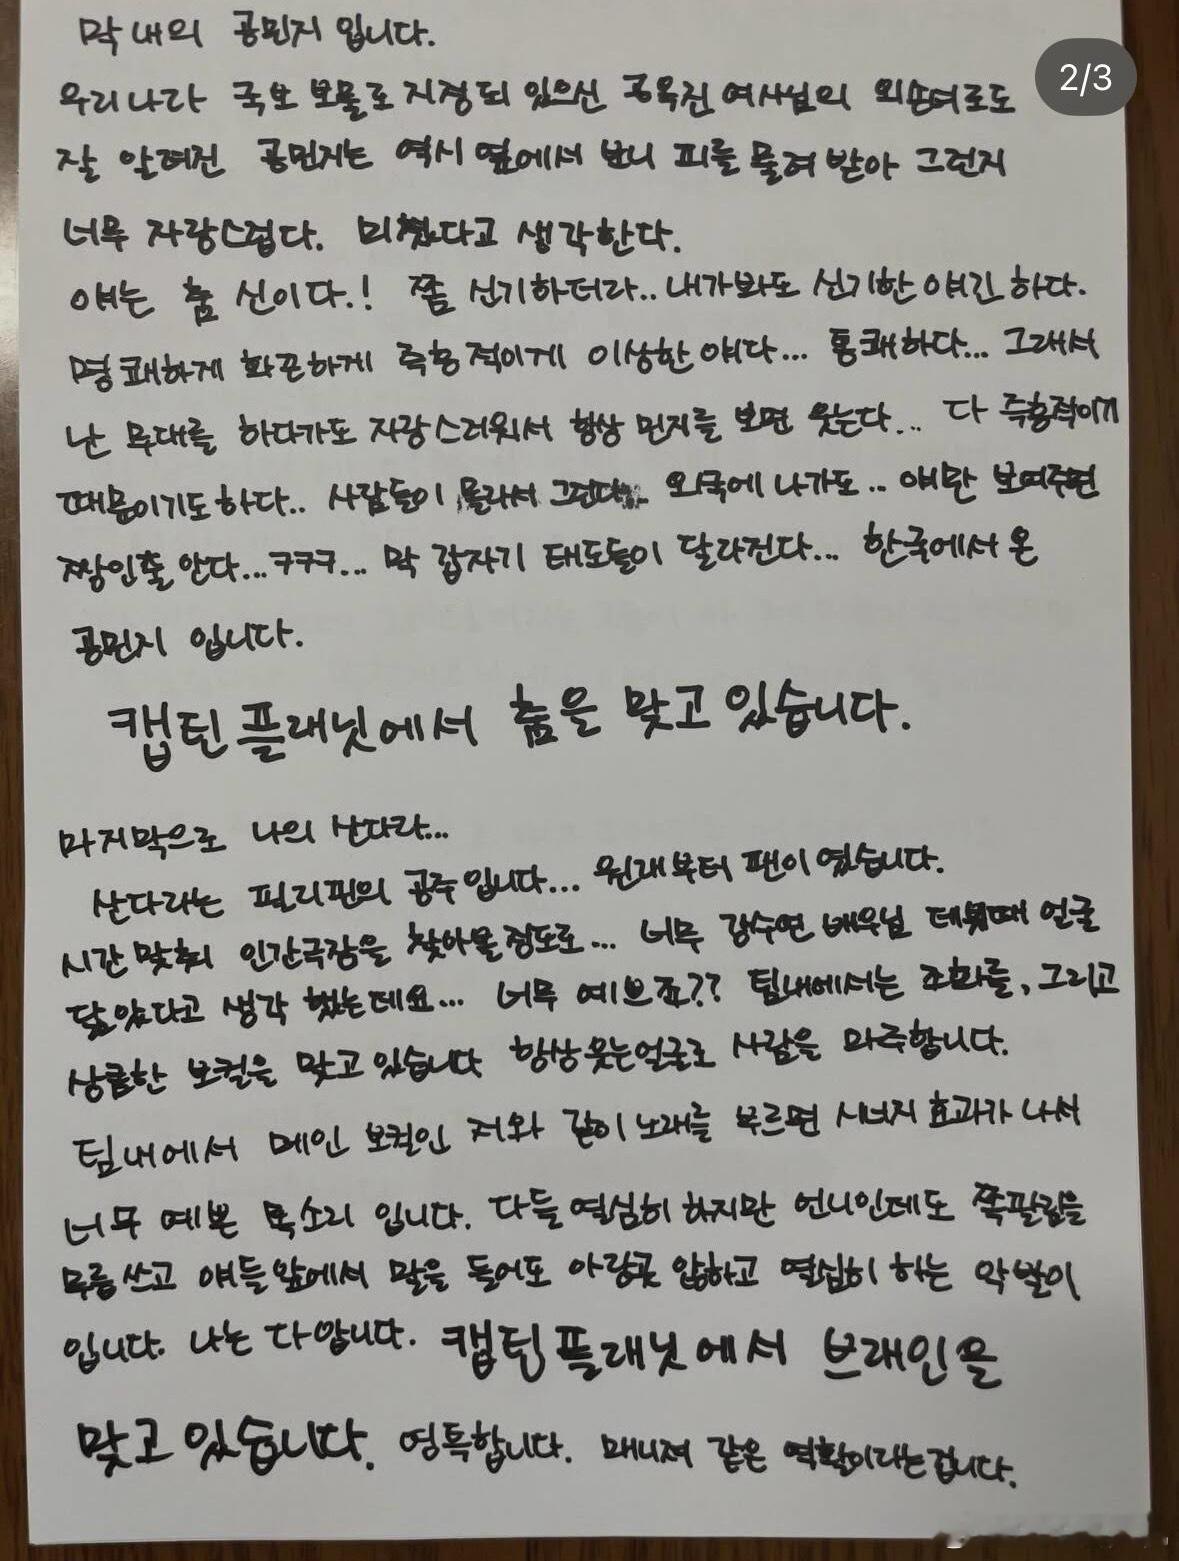 막내의 공민지 입니다.
2/3
우리나라 국보 보물로 지정되 있으신 공옥진 여사님의 외손녀로도
잘 알려진 공민지는 역시 옆에서 보니 피를 물려 받아 그런지
너무 자랑스럽다. 미쳤다고 생각한다.
얘는 춤 신이다.! 쫌 신기하더라.. 내가봐도 신기한 얘긴 하다.
명쾌하게 화끈하게 즉흥적이게 이상한 얘다... 통쾌하다... 그래서
난 무대를 하다가도 자랑스러워서 항상 민지를 보면 웃는다... 다 즉흥적이기
때문이기도하다.. 사람들이 몰라서 그런다... 외국에 나가도.. 얘만 보여주면
짱인줄 안다...ㅋㅋㅋ... 막 갑자기 태도들이 달라진다... 한국에서 온
공민지 입니다.
캡틴플래닛에서 춤을 맞고있습니다.
마지막으로 나의 산다라...
산다라는 필리핀의 공주입니다... 원래부터 팬이였습니다.
시간맞춰 인간극장을 찾아볼정도로... 너무 강수연 배우님 데뷔때 얼굴
닮았다고 생각 했는데요... 너무 예쁘죠?? 팀내에서는 조화를, 그리고
상큼한 보컬을 맞고있습니다 항상웃는얼굴로 사람을 마주합니다.
팀내에서 메인 보컬인 저와 같이 노래를 부르면 시너지 효과가 나서
너무 예쁜 목소리 입니다. 다들 열심히 하지만 언니인데도 쪽팔림을
무릎쓰고 얘들앞에서 말을 들어도 아랑곳 않하고 열심히 하는 악발이
입니다. 나는 다압니다. 캡틴플래닛에서 브레인을
맞고있습니다. 영특합니다. 매니져 같은 역활이라는겁니다.